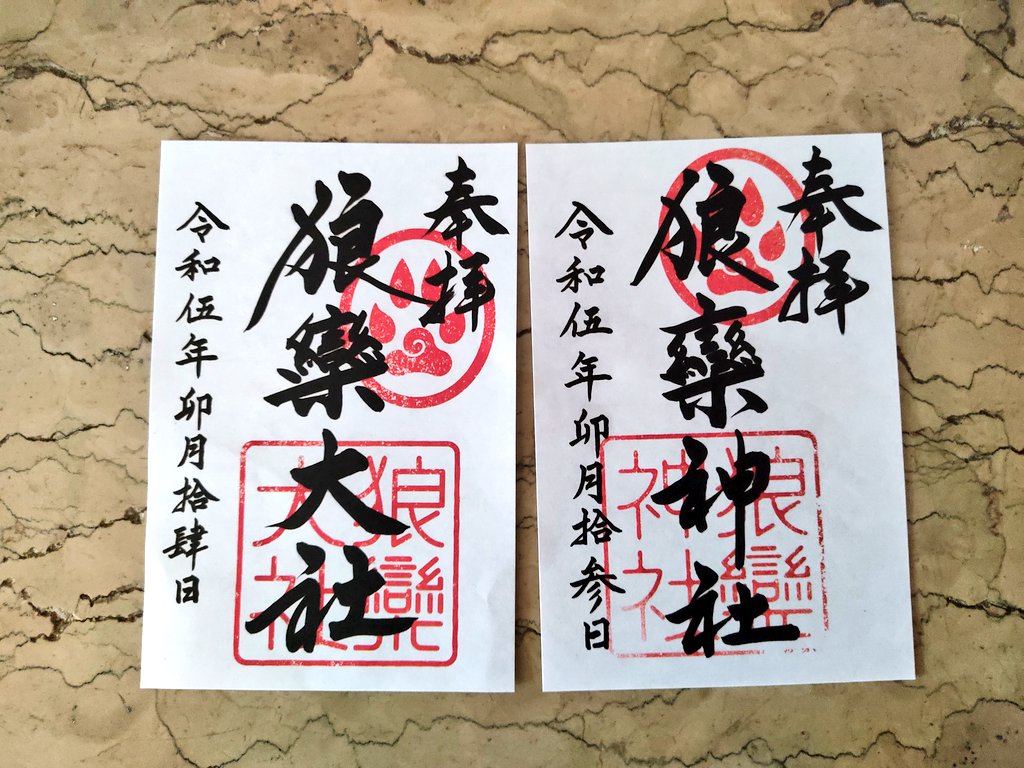 奉拝
狼欒神社
狼欒
神社
令和伍年卯月拾参日
奉拝
狼欒大社
狼欒
大社
令和伍年卯月拾肆日